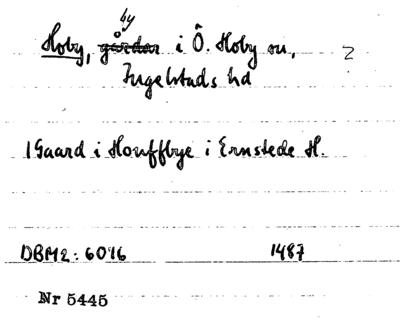 by
Hoby, gårdar i Ö. Hoby sn, 2
Ingelstads hd
1 Gaard i Houffbye i Ernstede H.
DBM2: 6096 1487
Nr 5445